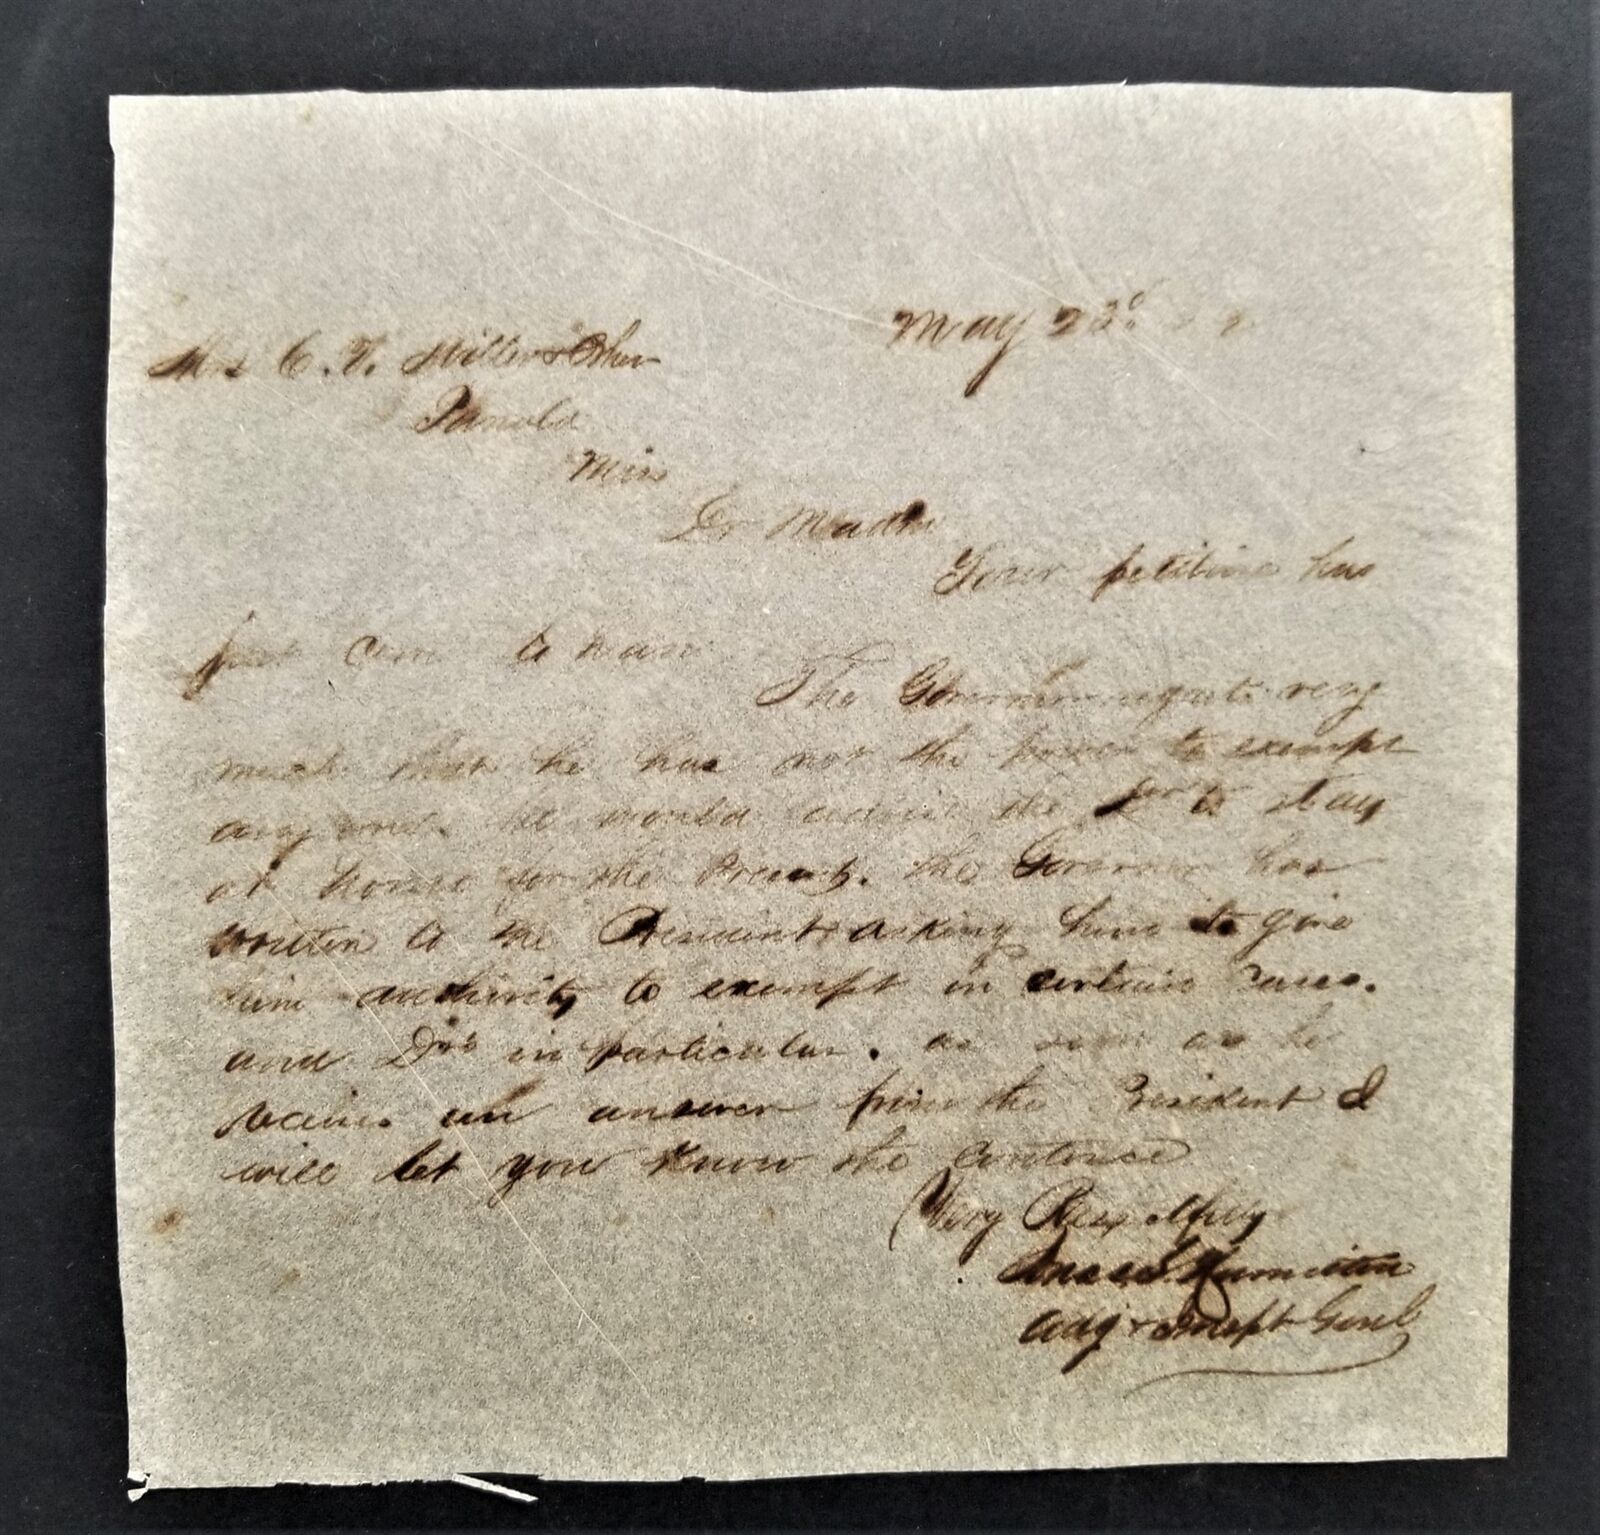 May 23d
Mrs C. T. Miller & Other
Panola
Miss
Dr Madam
Your petition has
just come to hand
The Governor regrets very
much that he has not the power to exempt
any one. he would advise the Dr to stay
at home for the Present. the Governor has
written to the President asking him to give
him authority to exempt in certain cases.
and Drs in particular. as soon as he
recieves an answer from the President I
will let you know the contence
Very Respectfully
Jones S. Hamilton
Adj & Inspt Genl